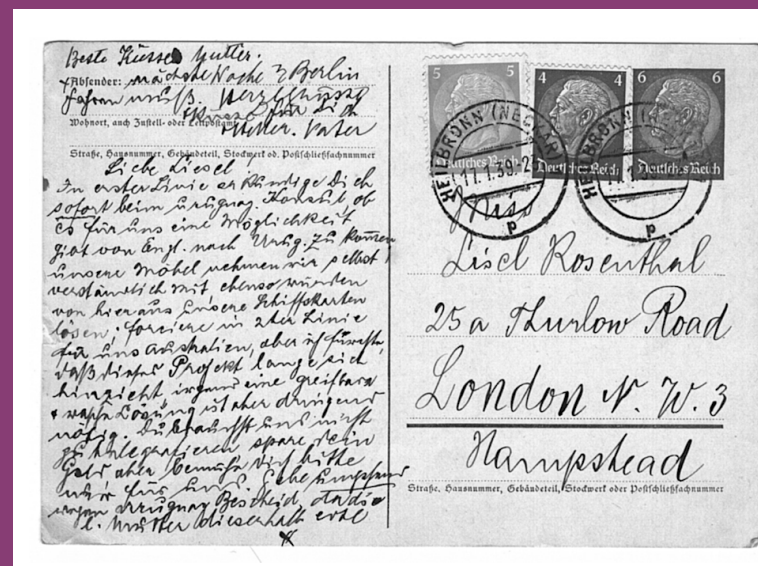 Beste Küsse Mutter.
Absender: nächste Woche z Berlin
fahren muß. Herzl. Grüsse
Küsse für Dich
Wohnort, auch Zustell- oder Leitpostamt
Mutter. Vater
Straße, Hausnummer, Gebäudeteil, Stockwerk od. Postschließfachnummer
Liebe Liesel!
In erster Linie erkundige Dich
sofort beim Urugay. Konsul, ob
es für uns eine Möglichkeit
gibt von Engl. nach Urug. zu kommen
unsere Möbel nehmen wir selbst
verständlich mit ebenso würden
von hier aus unsere Schiffskarten
lösen, forciere in 2ter Linie
für uns Australien, aber ich fürchte,
daß dieses Projekt lange sich
hinzieht, irgend eine greifbare
+ rasche Lösung ist aber dringend
nötig. Du brauchst uns nicht
zu telegrafieren spare dein
Geld aber bemühe Dich bitte
nur für uns. Gebe umgehend
wegen Urugay Bescheid, da die
l. Mutter dieserhalb evtl
5 5
4 4
6 6
Deutsches Reich
Deutsches Reich
Deutsches Reich
HEILBRONN (NECKAR)
p
HEILBRONN
p
Miss
Lisel Rosenthal
25 a Thurlow Road
London N. W. 3
Hampstead
Straße, Hausnummer, Gebäudeteil, Stockwerk oder Postschließfachnummer